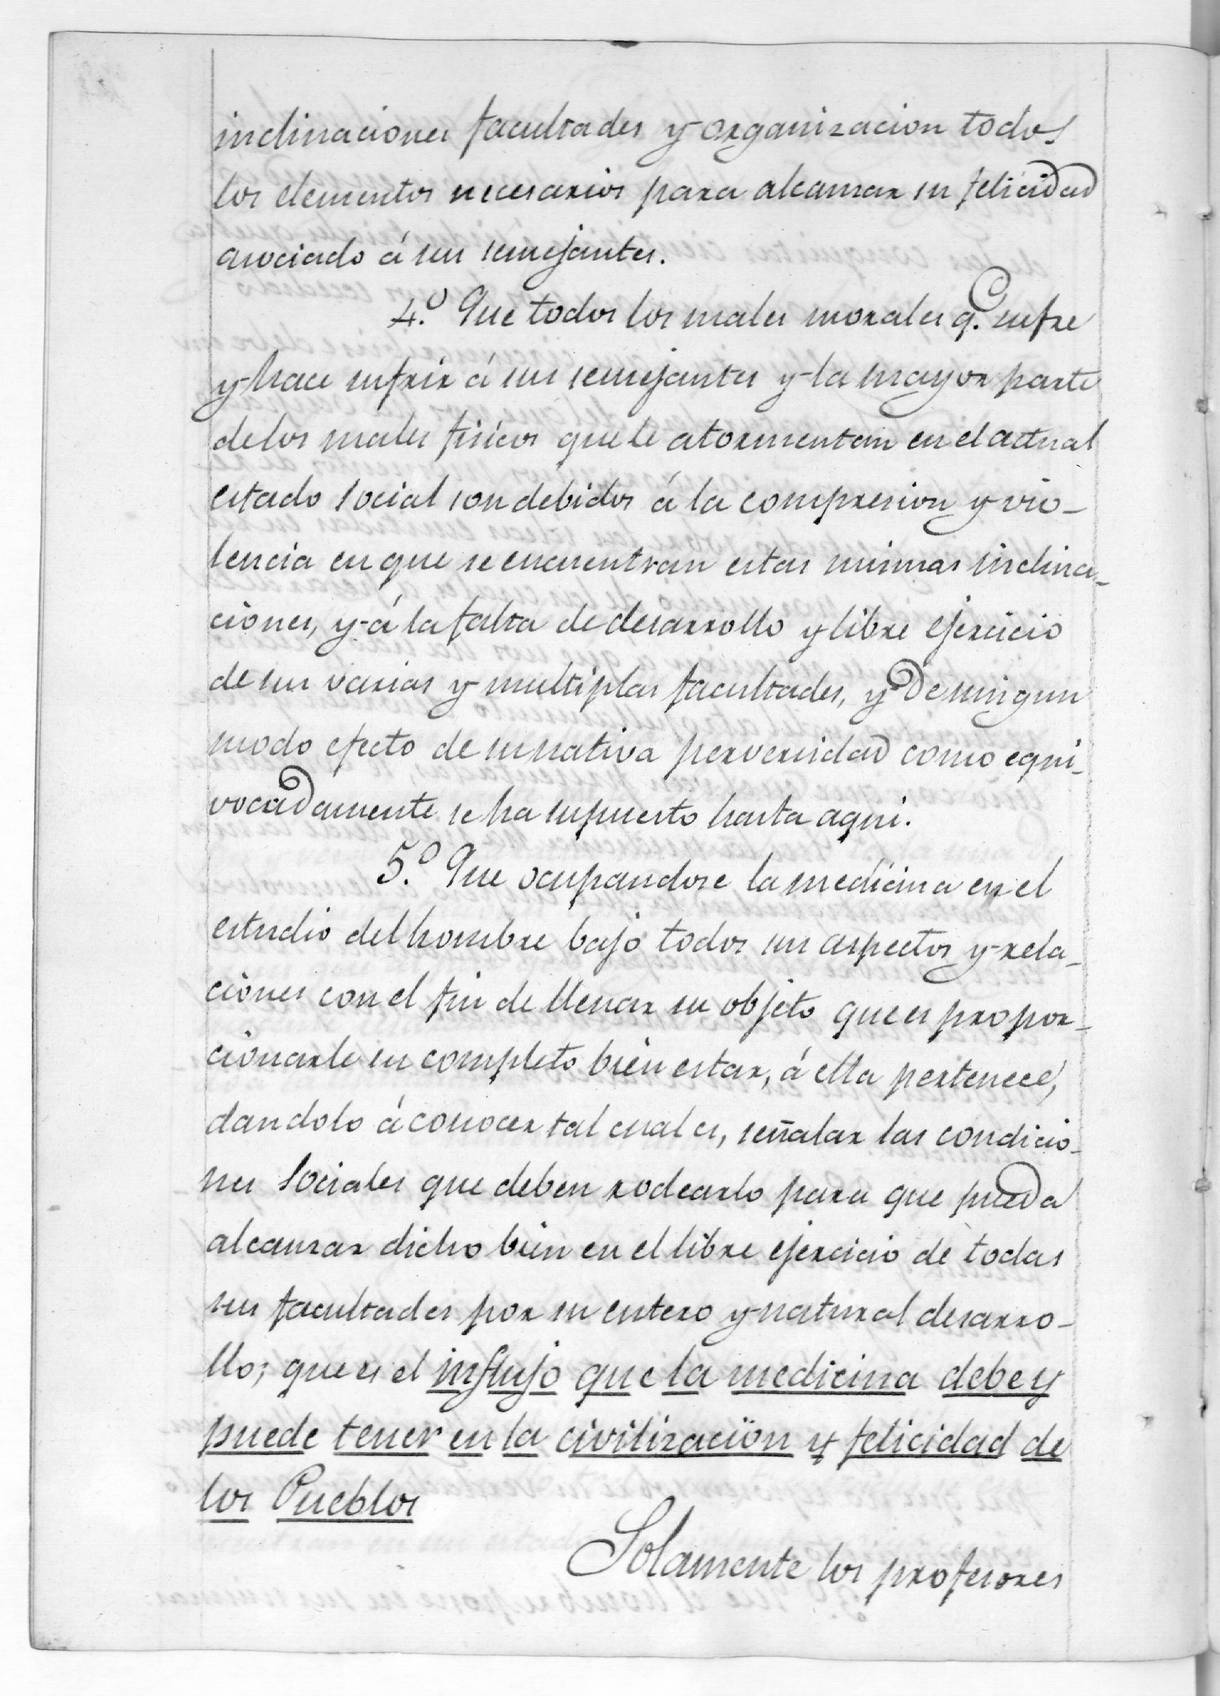 inclinaciones facultades y organizacion todos
los elementos necesarios para alcanzar su felicidad
asociado á sus semejantes.
4.º Que todos los males morales q.e sufre
y hace sufrir á sus semejantes y la mayor parte
de los males fisicos que le atormentan en el actual
estado social son debidos á la compresion y vio-
lencia en que se encuentran estas mismas inclina-
ciones, y á la falta de desarrollo y libre ejercicio
de sus varias y multiplas facultades, y de ningun
modo efecto de su nativa perversidad como equi-
vocadamente se ha supuesto hasta aqui.
5.º Que ocupandose la medicina en el
estudio del hombre bajo todos sus aspectos y rela-
ciones con el fin de llenar su objeto que es propor-
cionarle su completo bien estar, á ella pertenece,
dandolo á conocer tal cual es, señalar las condicio-
nes sociales que deben rodearlo para que pueda
alcanzar dicho bien en el libre ejercicio de todas
sus facultades por su entero y natural desarro-
llo; que es el influjo que la medicina debe y
puede tener en la civilizacion y felicidad de
los Pueblos
Solamente los profesores